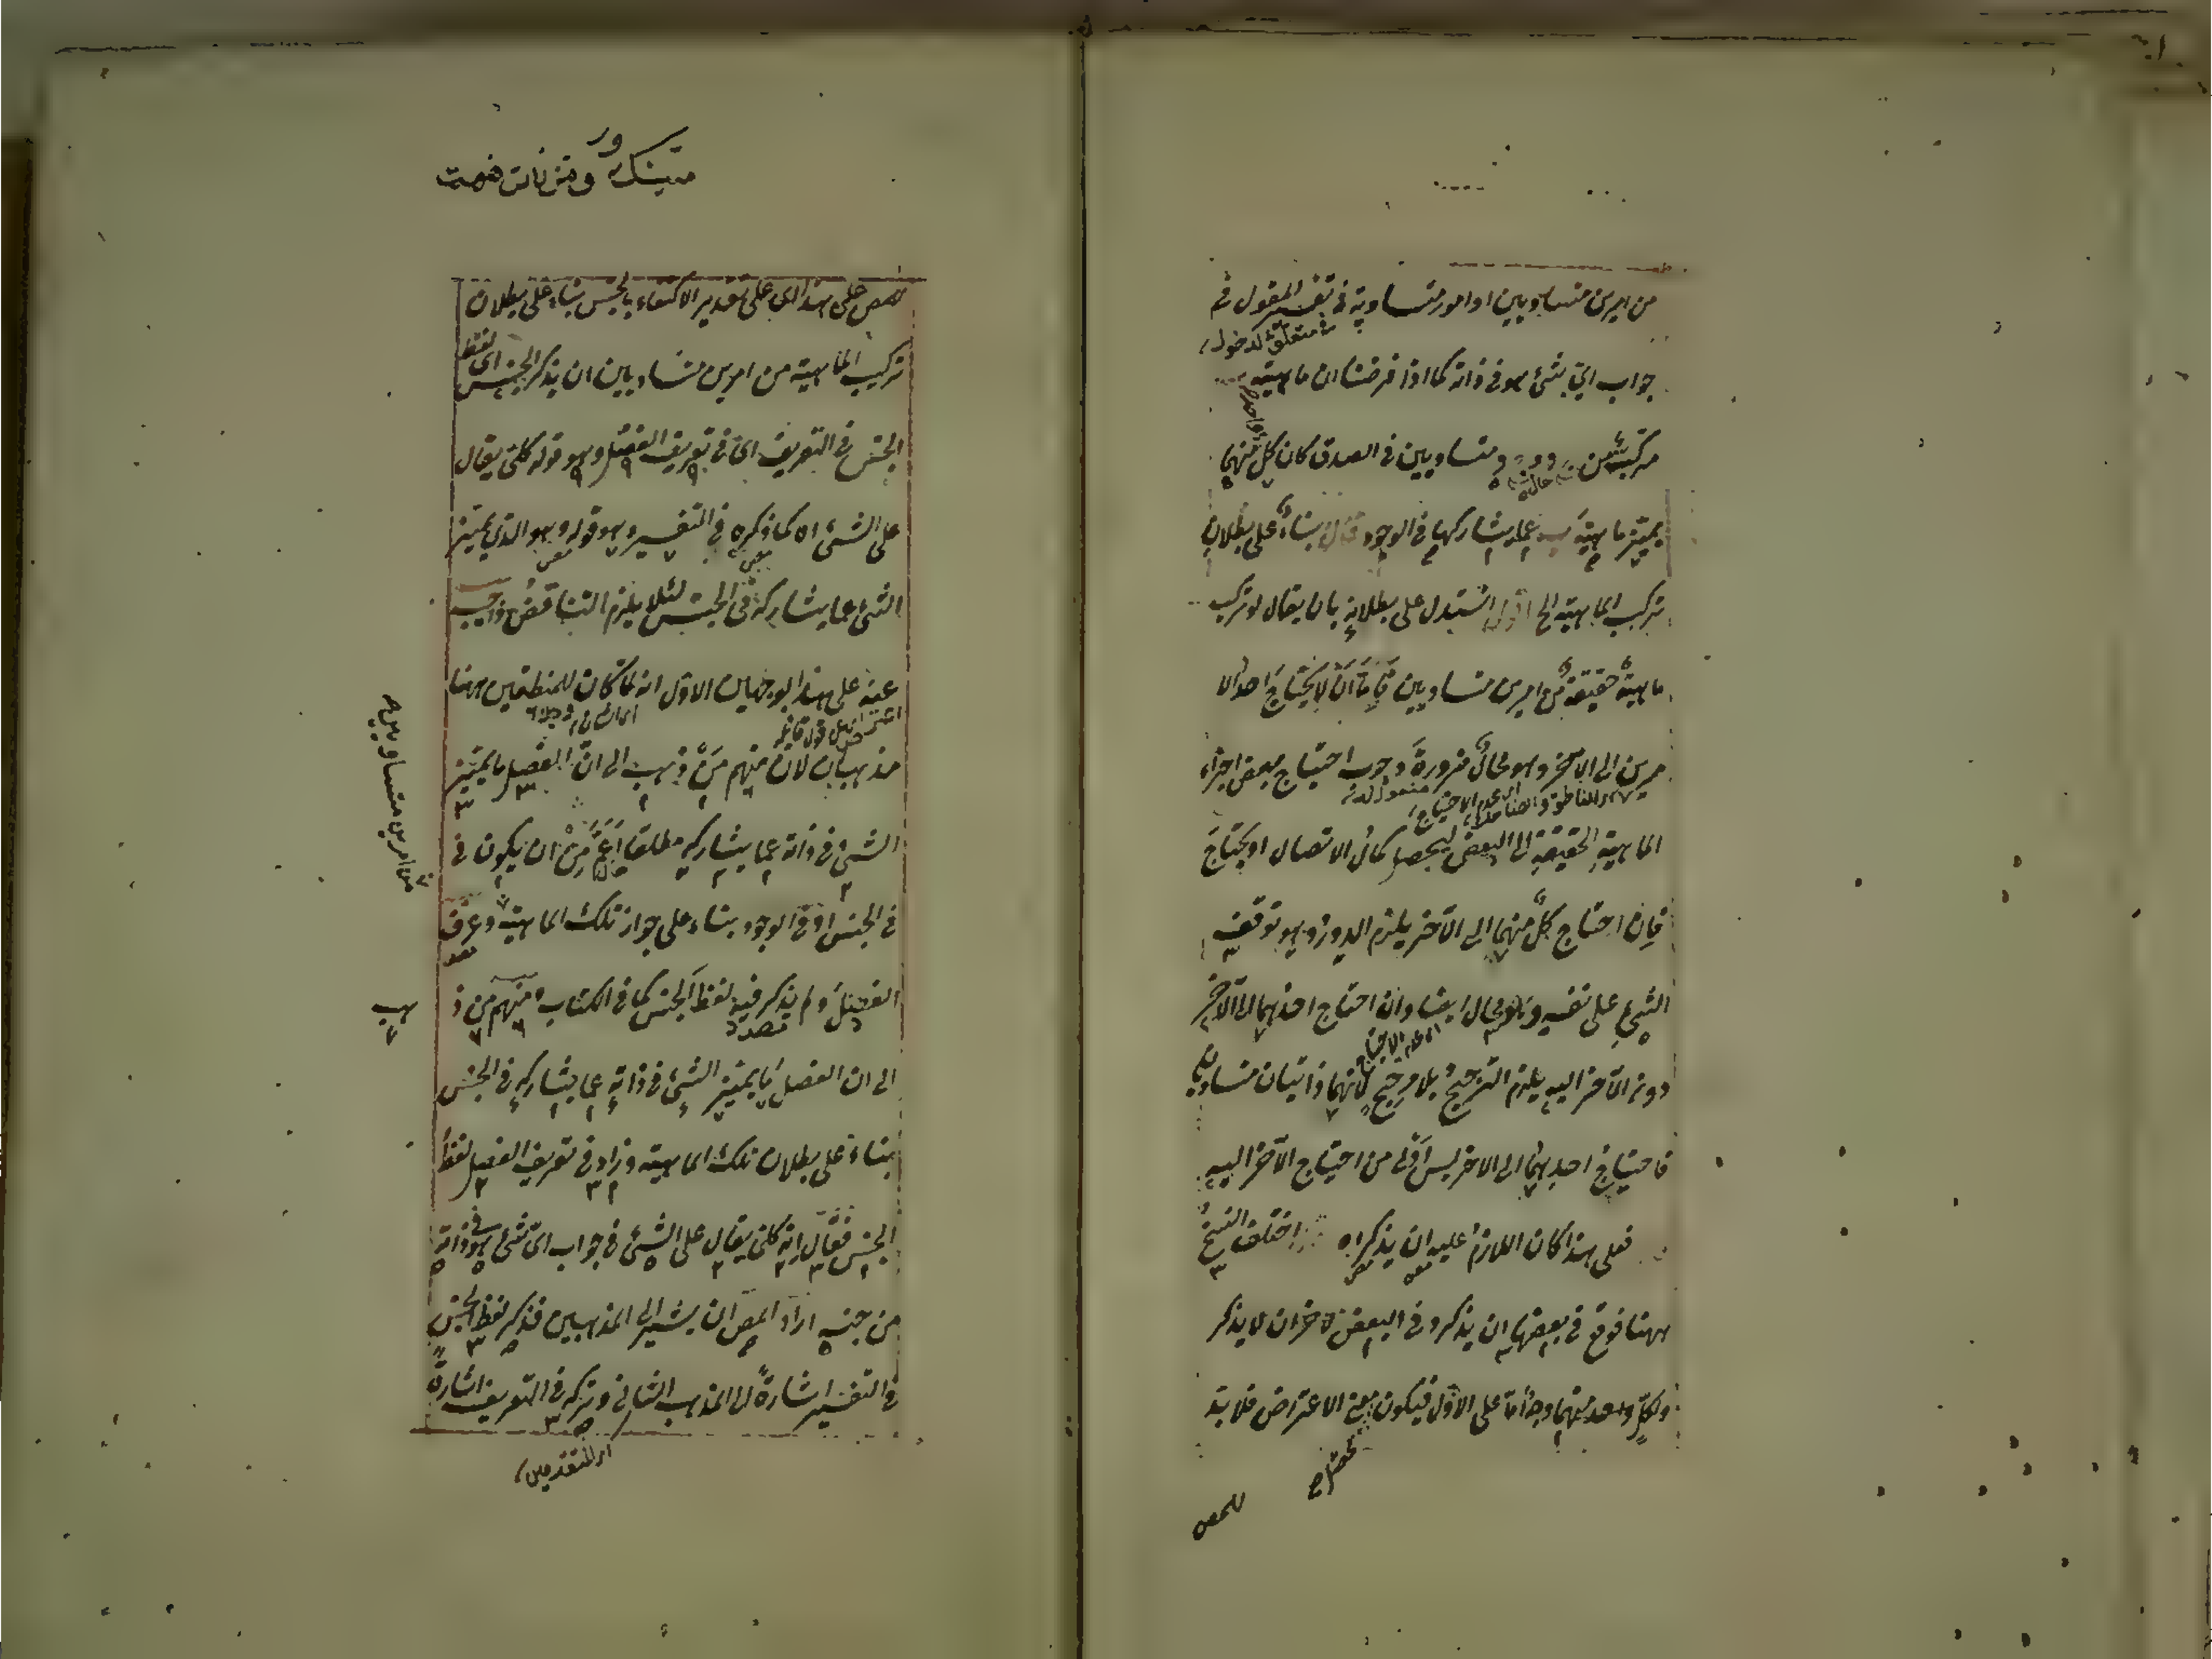 من امرين متساويين او امور متساوية في تفسير المقول في
متعلق لدخول
جواب اي شئ هو في ذاته كما اذا فرضنا ان ماهية
مركبة من متساويين في الصدق كان كل منهما
يميز ماهية عما يشاركها في الوجود قال بناء على بطلان
تركب الماهية الخ اقول استدل على بطلانه بان يقال لو تركب
ماهية حقيقة من امرين متساويين فاما ان لا يحتاج احد الا
مرين الى الآخر وهو محال ضرورة وجوب احتياج بعض اجزاء
الماهية الحقيقية الى البعض ليحصل كمال الاتصال او يحتاج
فان احتاج كل منهما الى الآخر يلزم الدور وهو توقف
الشئ على نفسه وهو محال ايضا وان احتاج احدهما الى الآخر
اي عدم الاحتياج
دون الآخر اليه يلزم الترجيح بلا مرجح لانهما ذاتيان متساويان
فاحتياج احدهما الى الاخر ليس اولى من احتياج الآخر اليه
فعلى هذا كان اللازم عليه ان يذكر اه اختلف النسخ
ههنا فوقع في بعضها ان يذكر وفي البعض الاخر ان لا يذكر
ولكل واحد منهما وجه اما على الاول فيكون معنى الاعتراض فلا بد
للمص
للمص على هذا اي على تقدير الاكتفاء بالجنس بناء على بطلان
تركيب الماهية من امرين متساويين ان يذكر الجنس اي لفظ
الجنس في التعريف اي في تعريف الفصل وهو قوله كلي يقال
على الشئ اه كما ذكره في التفسير وهو قوله وهو الذي يميز
الشئ عما يشاركه في الجنس لئلا يلزم التناقض واجيب
عنه على هذا بوجهين الاول انه لما كان للمنطقيين ههنا
مذهبان لان منهم من ذهب الى ان الفصل ما يميز
الشئ في ذاته عما يشاركه مطلقا اعم من ان يكون في
من امرين متساويين
في الجنس او في الوجود بناء على جواز تلك الماهية وعرف
الفصل ولم يذكر فيه لفظ الجنس كما في الكتاب ومنهم من ذ
هب
الى ان الفصل ما يميز الشئ في ذاته عما يشاركه في الجنس
بناء على بطلان تلك الماهية وزاد في تعريف الفصل لفظ
الجنس فقال انه كلي يقال على الشئ في جواب اي شئ هو في ذاته
من جنسه اراد المص ان يشير الى المذهبين فذكر لفظ الجنس
في التفسير اشارة الى المذهب الثاني وتركه في التعريف اشارة
اي المتقدمين